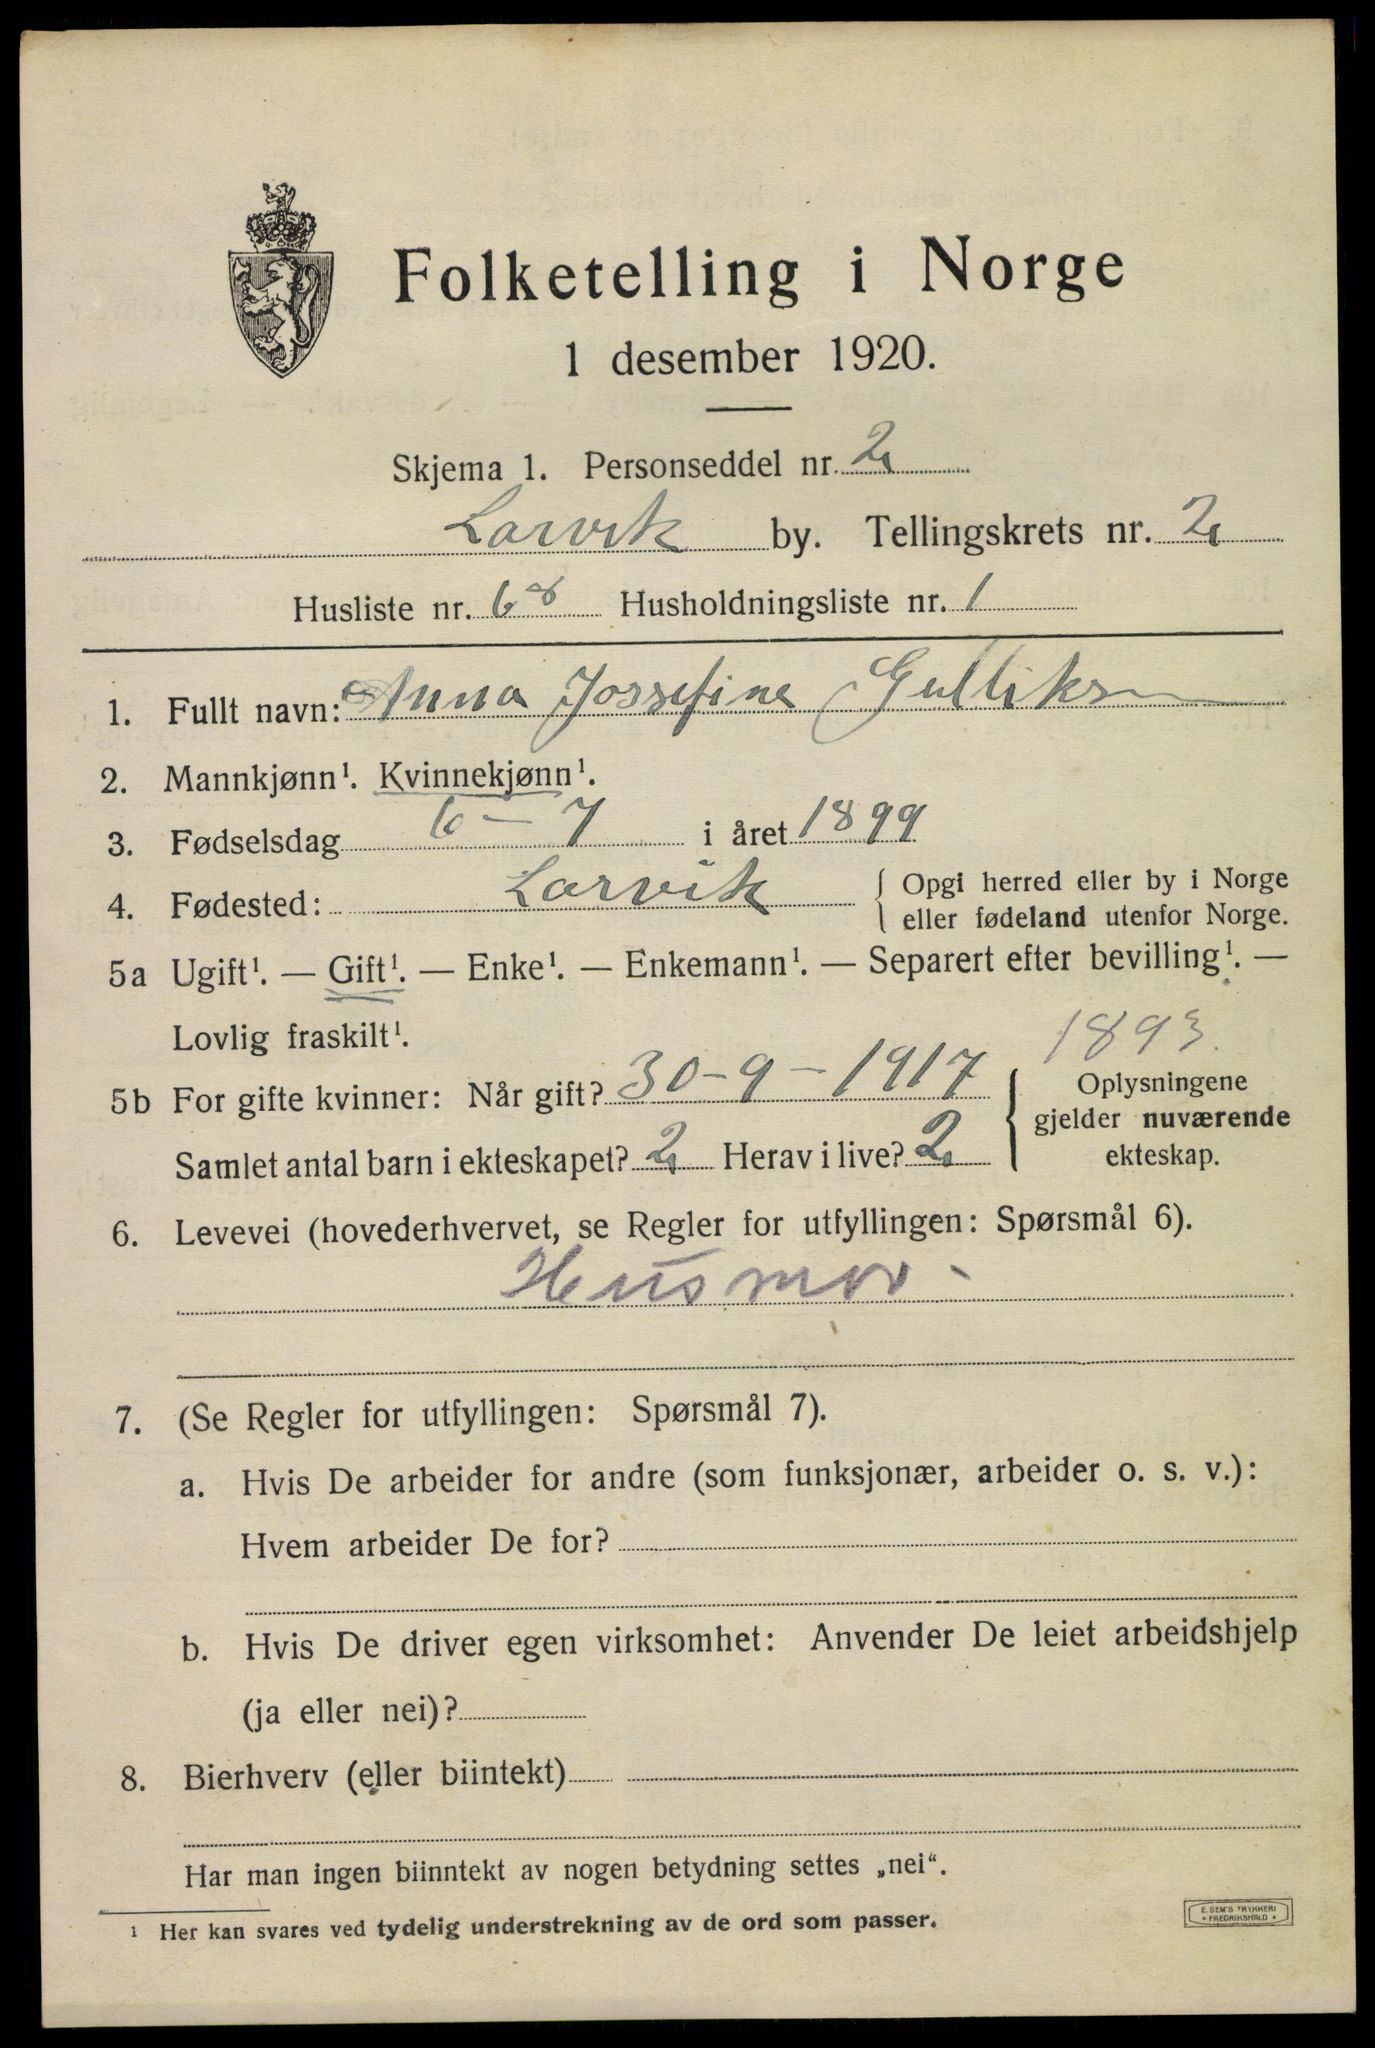 Folketelling i Norge
1 desember 1920.
Skjema 1. Personseddel nr. 2
Larvik by. Tellingskrets nr. 2
Husliste nr. 68 Husholdningsliste nr. 1
1. Fullt navn: Anna Jossefine Gulliksen
2. Mannkjønn¹. Kvinnekjønn¹.
3. Fødselsdag 6 - 7 i året 1899
4. Fødested: Larvik { Opgi herred eller by i Norge
eller fødeland utenfor Norge.
5a Ugift¹. — Gift¹. — Enke¹. — Enkemann¹. — Separert efter bevilling¹. —
Lovlig fraskilt¹.
1893.
5b For gifte kvinner: Når gift? 30-9-1917 { Oplysningene
gjelder nuværende
Samlet antal barn i ekteskapet? 2 Herav i live? 2 ekteskap.
6. Levevei (hovederhvervet, se Regler for utfyllingen: Spørsmål 6).
Husmor -
7. (Se Regler for utfyllingen: Spørsmål 7).
a. Hvis De arbeider for andre (som funksjonær, arbeider o. s. v.):
Hvem arbeider De for?
b. Hvis De driver egen virksomhet: Anvender De leiet arbeidshjelp
(ja eller nei)?
8. Bierhverv (eller biintekt)
Har man ingen biinntekt av nogen betydning settes „nei“.
¹ Her kan svares ved tydelig understrekning av de ord som passer.
E. SEM'S TRYKKERI
* FREDRIKSHALD *